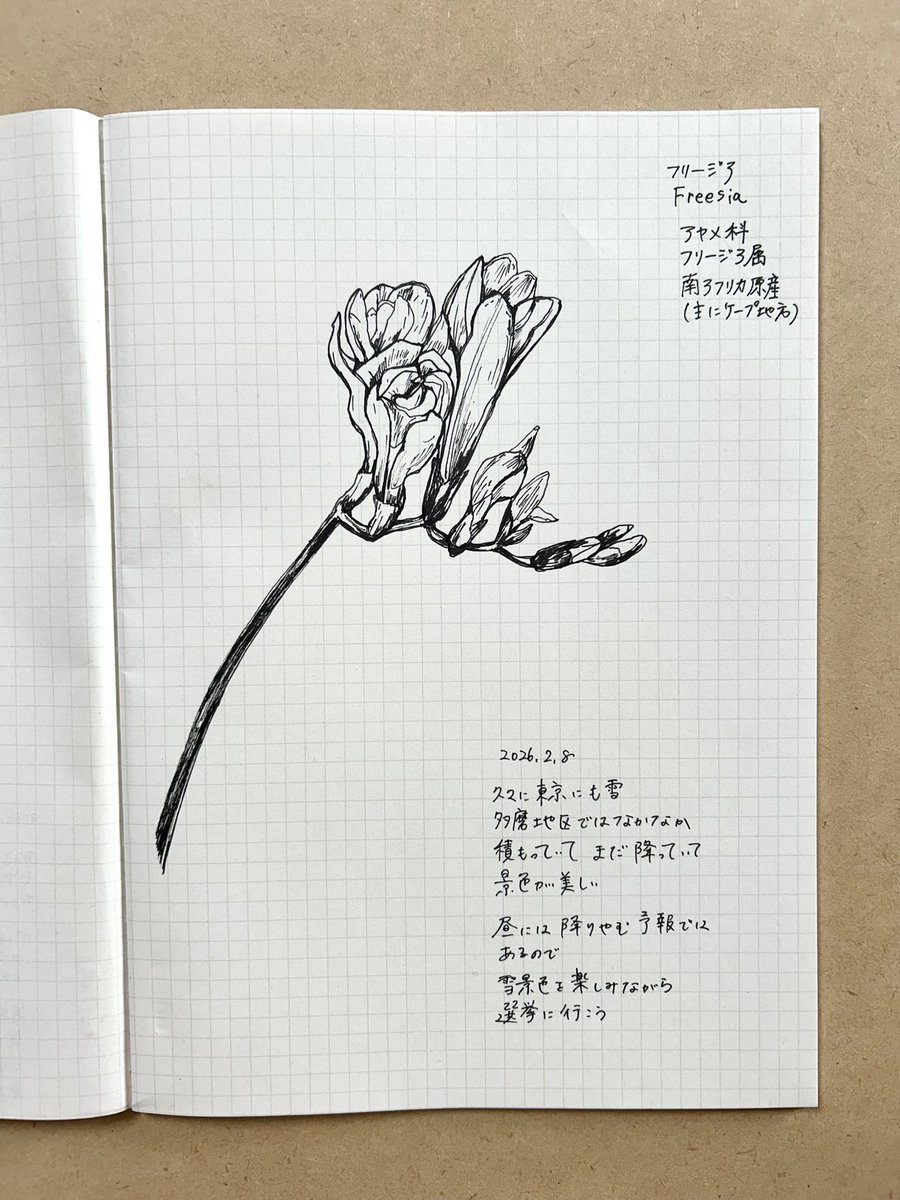 フリージア
Freesia
アヤメ科
フリージア属
南アフリカ原産
(主にケープ地方)
2026.2.8
久々に東京にも雪
多磨地区ではなかなか
積もっていて まだ降っていて
景色が美しい
昼には降りやむ予報では
あるので
雪景色を楽しみながら
選挙に行こう